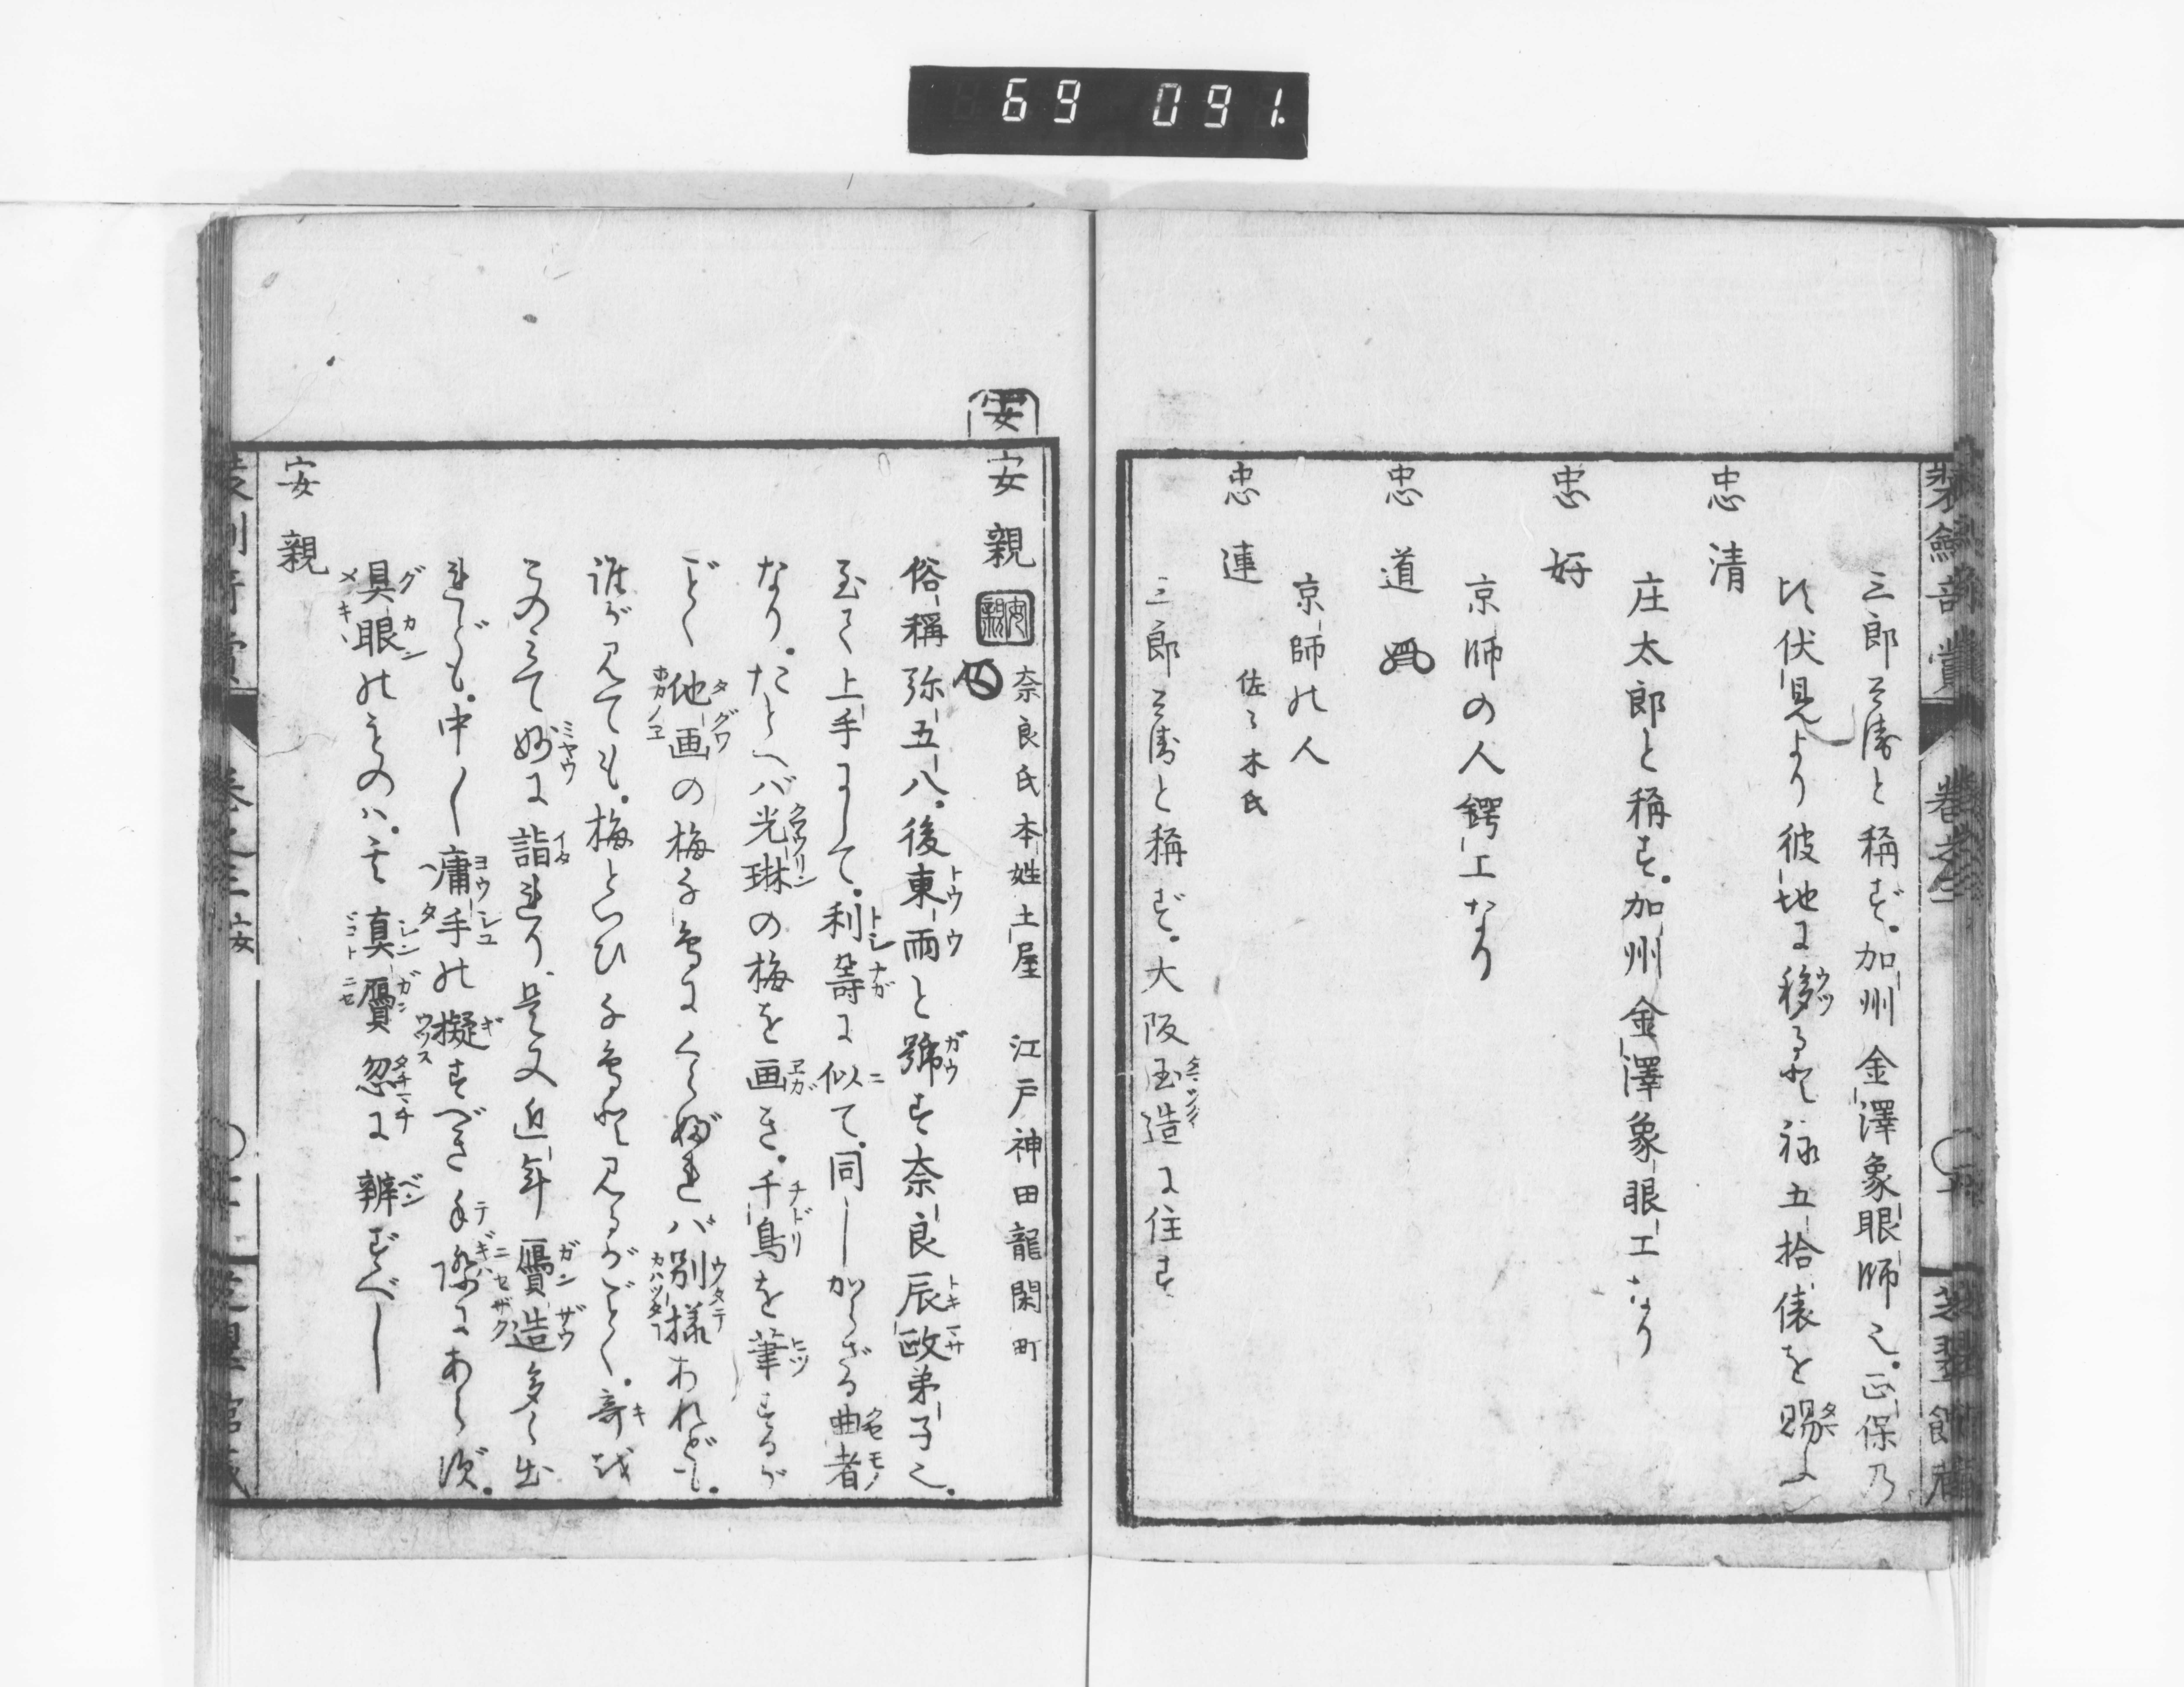 69 091.
三郎兵衛と稱す。加州金澤象眼師也。正保乃
比伏見より彼地に移るとて禄五拾俵を賜ふ
忠清
庄太郎と稱す。加州金澤象眼工なり
忠好
京師の人鍔工なり
忠道
京師の人
忠連 佐々木氏
三郎兵衛と稱す。大阪玉造に住す
安
安親 安親 奈良氏本姓土屋 江戸神田龍閑町
俗稱弥五八。後東雨と號す奈良辰政弟子也。
至て上手にして。利壽に似て。同しからざる曲者
なり。たとへバ光琳の梅を画き。千鳥を筆するが
ごとく他画の梅千鳥にくらぶれバ別様あれども。
誰が見ても。梅といひ千鳥と見るがごとく。奇を
このみて妙に詣れり。是又近年贋造多く出
れども。中〱庸手の擬すべき手際にあらず。
具眼のものハ。其真贋忽に辨ずべし
安親